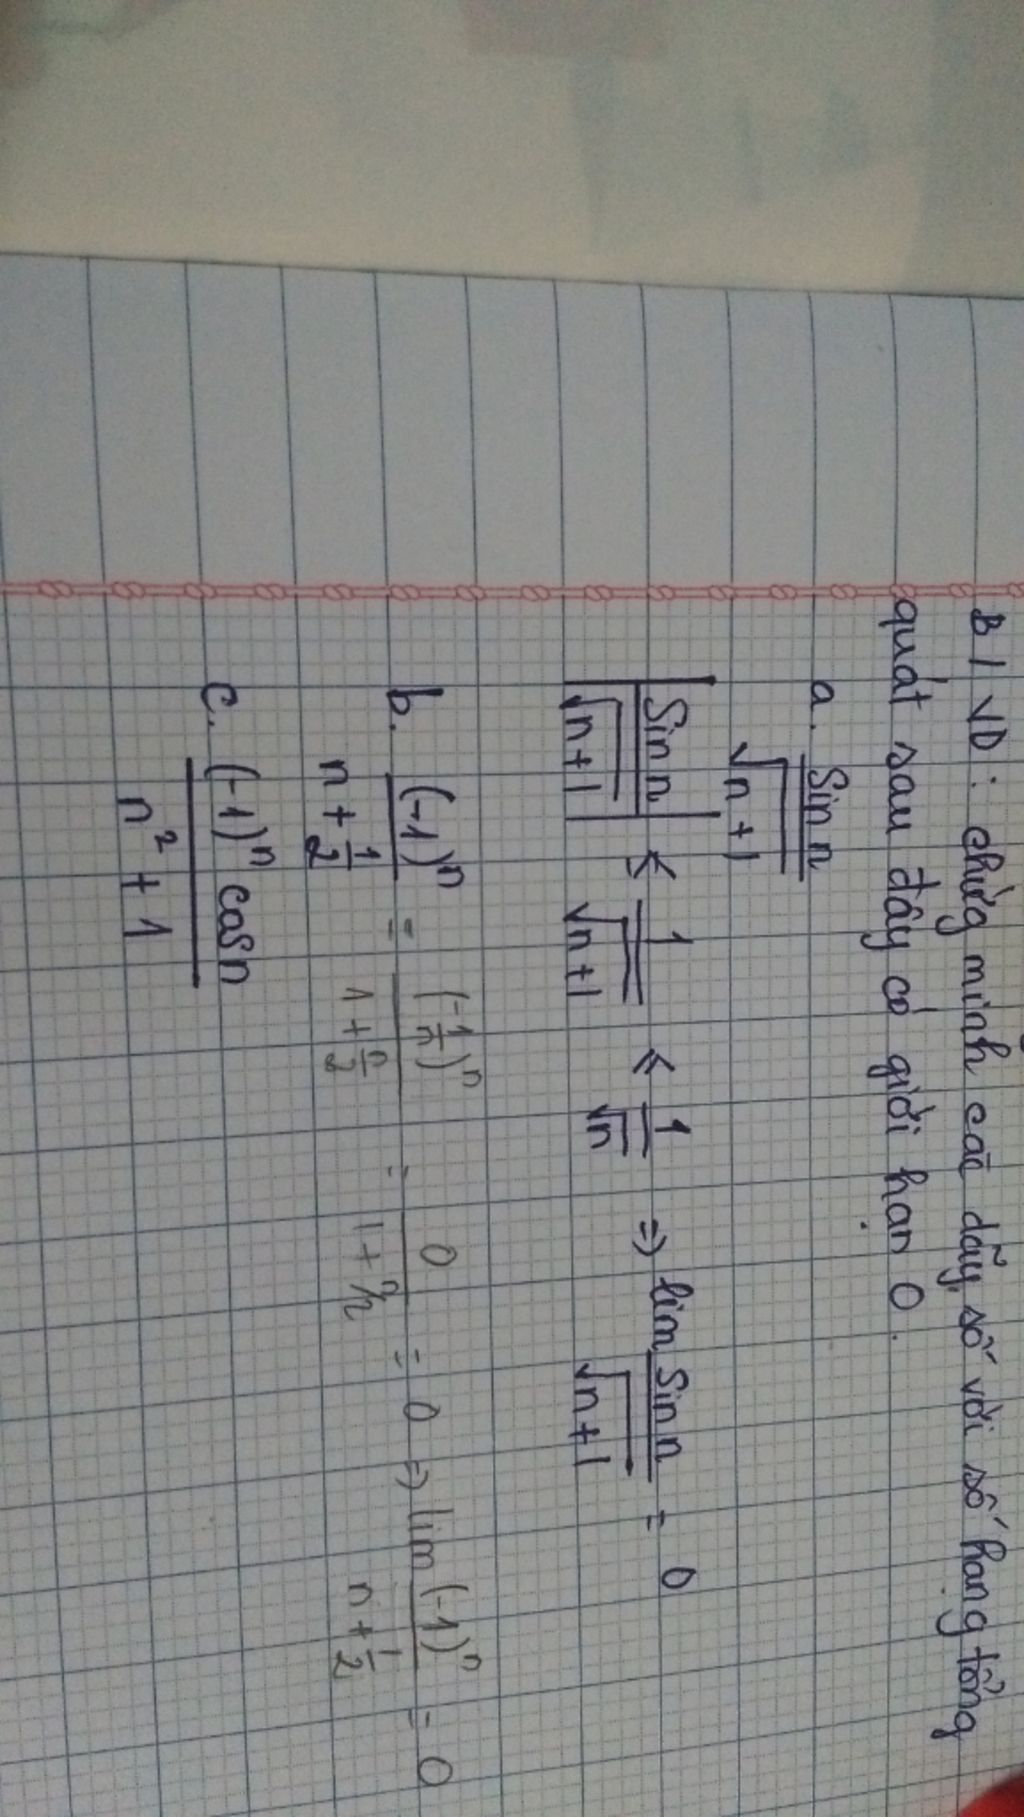 B / VD : chứg minh các dãy số với số hạng tổng
quát sau đây có giới hạn 0.
a. Sin n / √n+1
|Sin n / √n+1| ≤ 1 / √n+1 ≤ 1 / √n ⇒ lim Sin n / √n+1 = 0
b. (-1)ⁿ / n + 1/2 = (-1/n)ⁿ / 1 + n/2 = 0 / 1 + n/2 = 0 ⇒ lim (-1)ⁿ / n + 1/2 = 0
c. (-1)ⁿ cosn / n² + 1